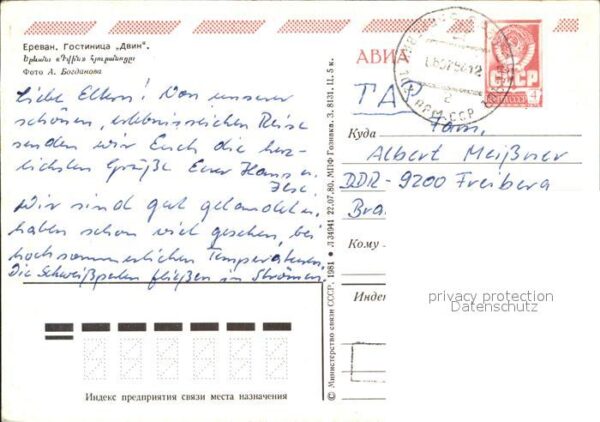 Ереван. Гостиница „Двин".
Երևան: «Դվին» հյուրանոցը
Фото А. Богданова
Liebe Eltern! Von unserer
schönen, erlebnisreichen Reise
senden wir Euch die herz-
lichsten Grüße Euer Hans u.
Wir sind gut gelandet u.
haben schon viel gesehen, bei
hochsommerlichen Temperaturen.
Die Schweißperlen fließen in Strömen.
Индекс предприятия связи места назначения
© Министерство связи СССР, 1981 ● Л 34941 22.07.80. МПФ Гознака. З. 8131. Ц. 5 к.
АВИА
СССР
4
Куда Fam.
Albert Meißner
DDR-9200 Freiberg
Bra
Кому
Индек
privacy protection
Datenschutz